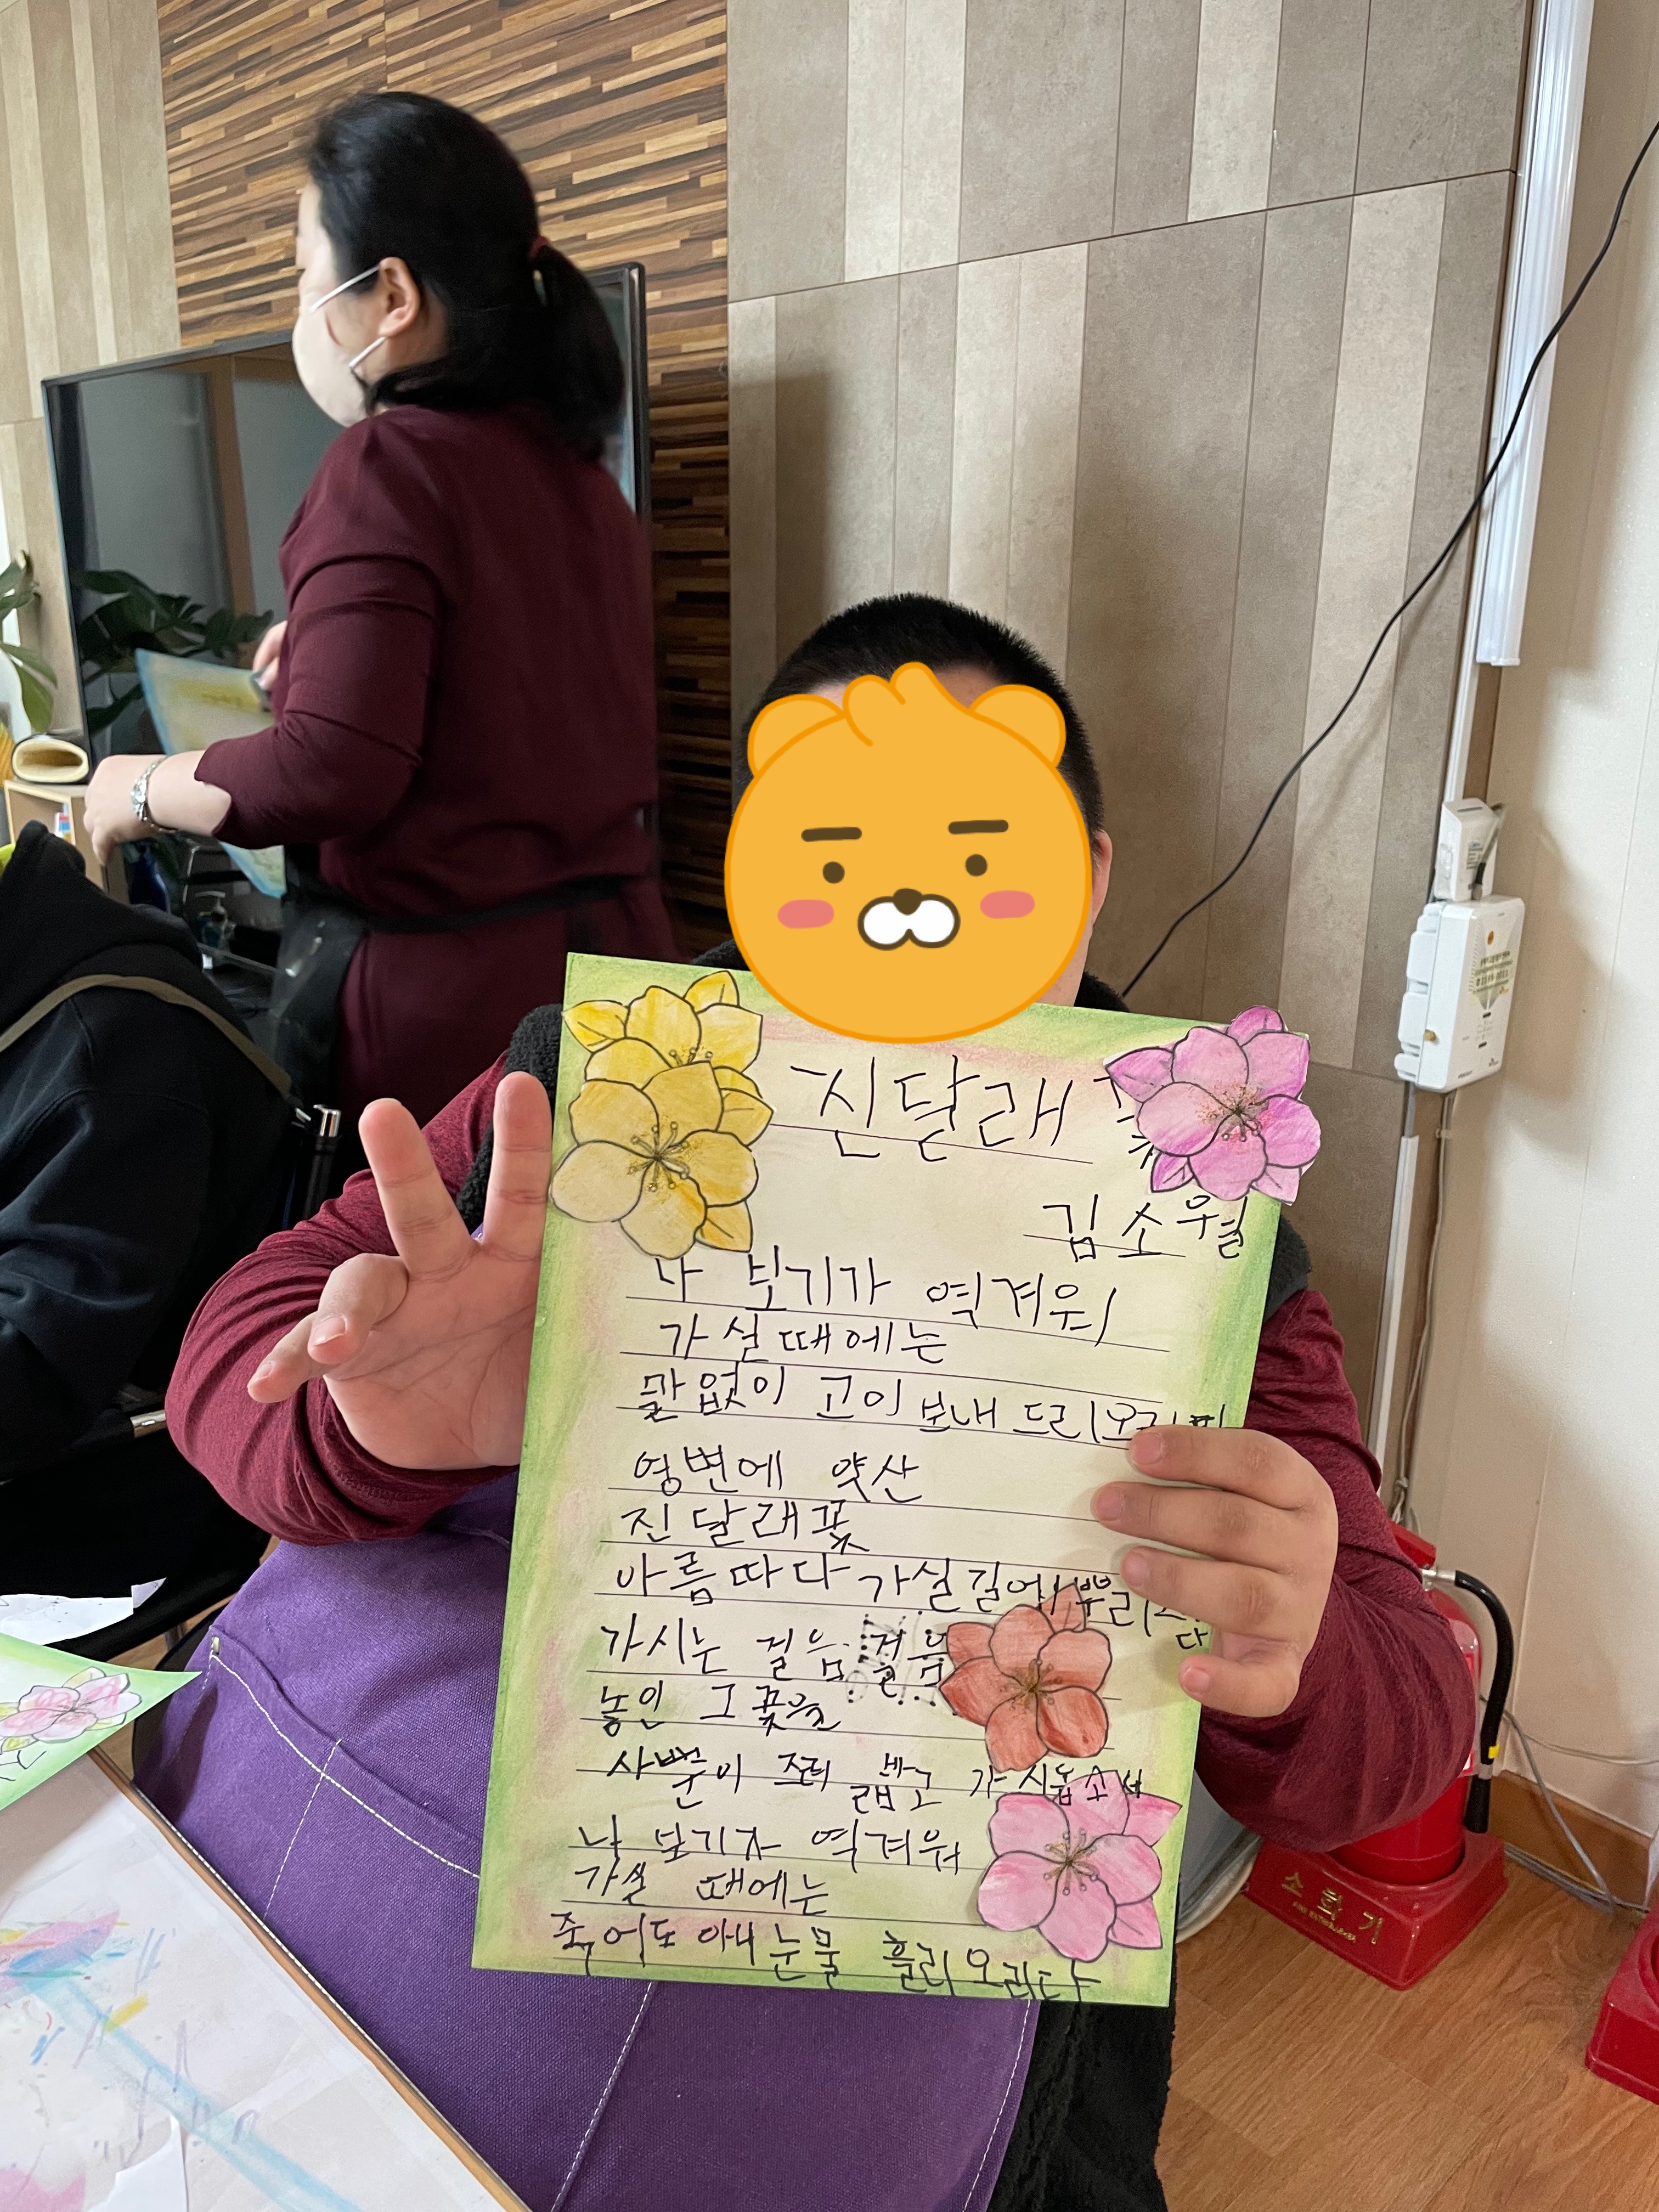 진달래 꽃
김소월
나 보기가 역겨워
가실때에는
말없이 고이 보내 드리오리
영변에 약산
진달래꽃
아름따다 가실길에 뿌리
다
가시는 걸음 걸음
놓인 그 꽃을
사뿐이 즈려 밟고 가시옵소서
나 보기가 역겨워
가실 때에는
죽어도 아니 눈물 흘리오리다
소화기